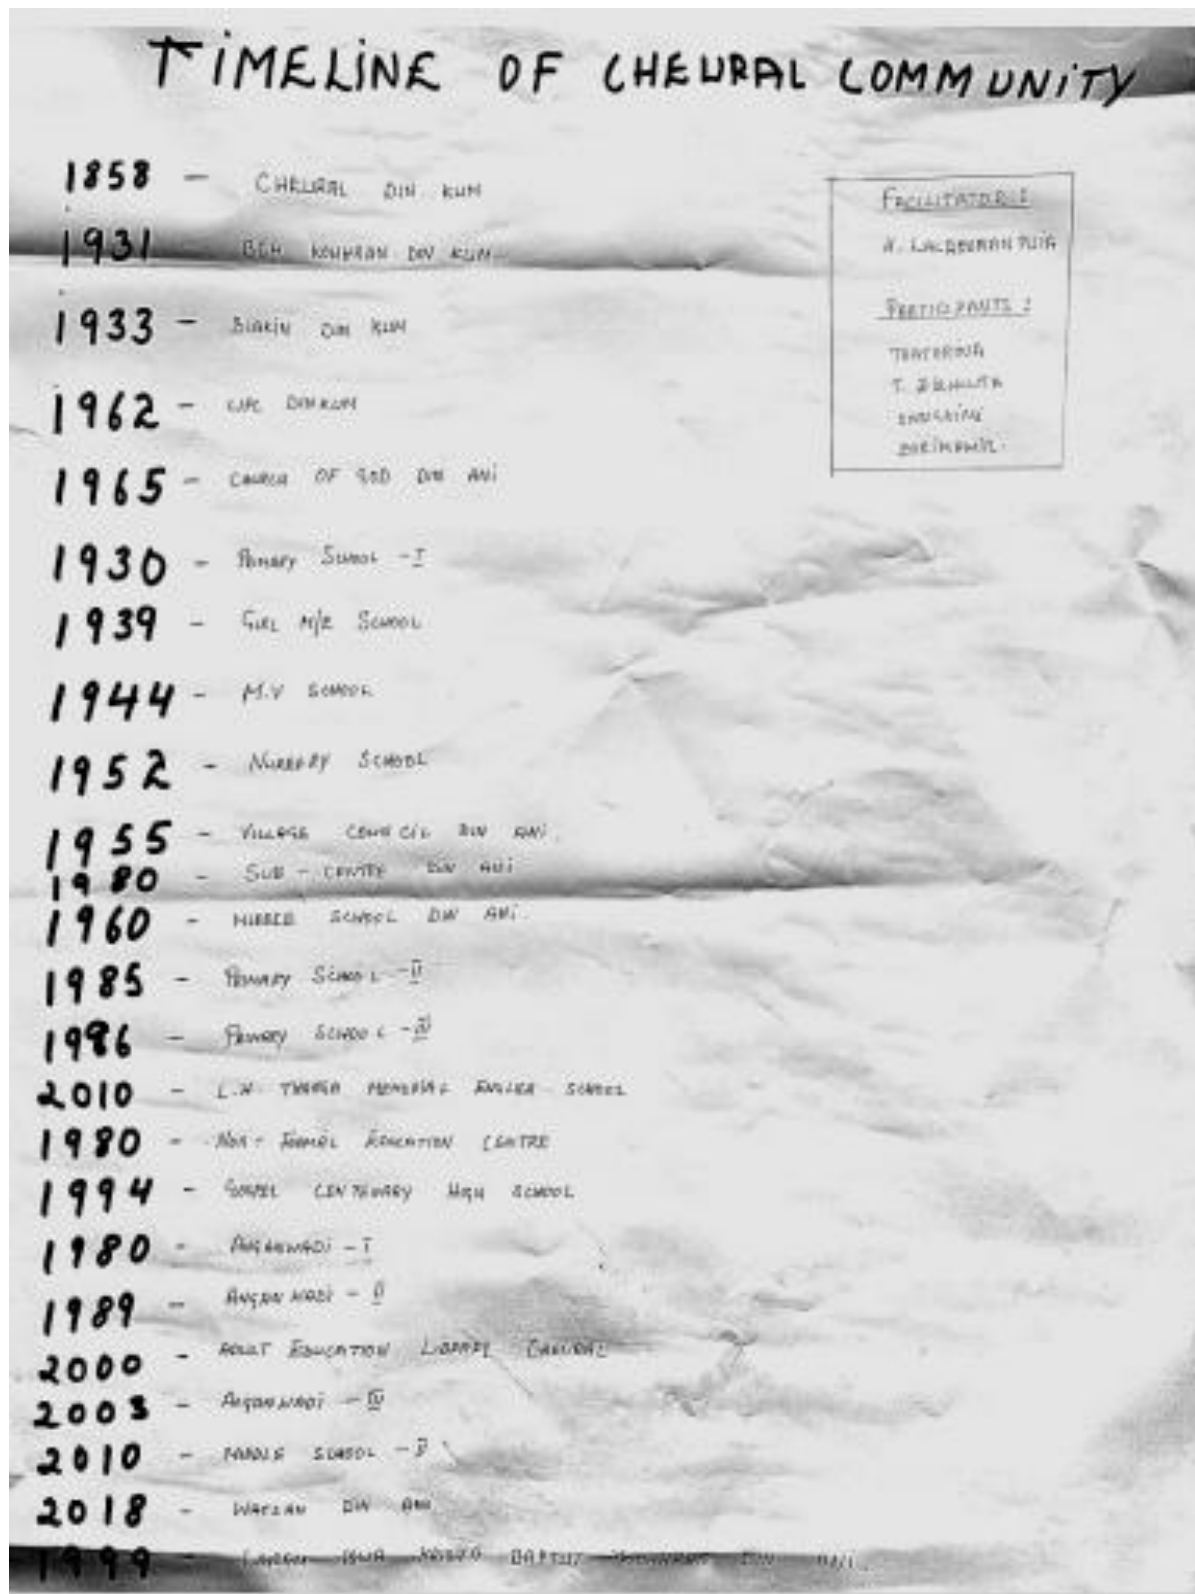 TIMELINE OF CHEURAL COMMUNITY
1858 - CHEURAL DIN KUM
1931 - BCM KOHHRAN DIN KUM
1933 - BIAKIN DIN KUM
1962 - UPC DIN KUM
1965 - CHURCH OF GOD DIN ANI
1930 - PRIMARY SCHOOL - I
1939 - GIRL M/E SCHOOL
1944 - M.V SCHOOL
1952 - NURSERY SCHOOL
1955 - VILLAGE COUNCIL DIN ANI
1980 - SUB - CENTRE DIN ANI
1960 - MIDDLE SCHOOL DIN ANI
1985 - PRIMARY SCHOOL - II
1986 - PRIMARY SCHOOL -
2010 - L.H. MEMORIAL ENGLISH SCHOOL
1980 - NON - FORMAL EDUCATION CENTRE
1994 - GOSPEL CENTENARY HIGH SCHOOL
1980 - ANGANWADI - I
1989 - ANGANWADI - II
2000 - ADULT EDUCATION LIBRARY CHEURAL
2003 - ANGANWADI -
2010 - MIDDLE SCHOOL - II
2018 - DIN ANI
1999 - BAPTIST DIN ANI
FACILITATORS
PARTICIPANTS :